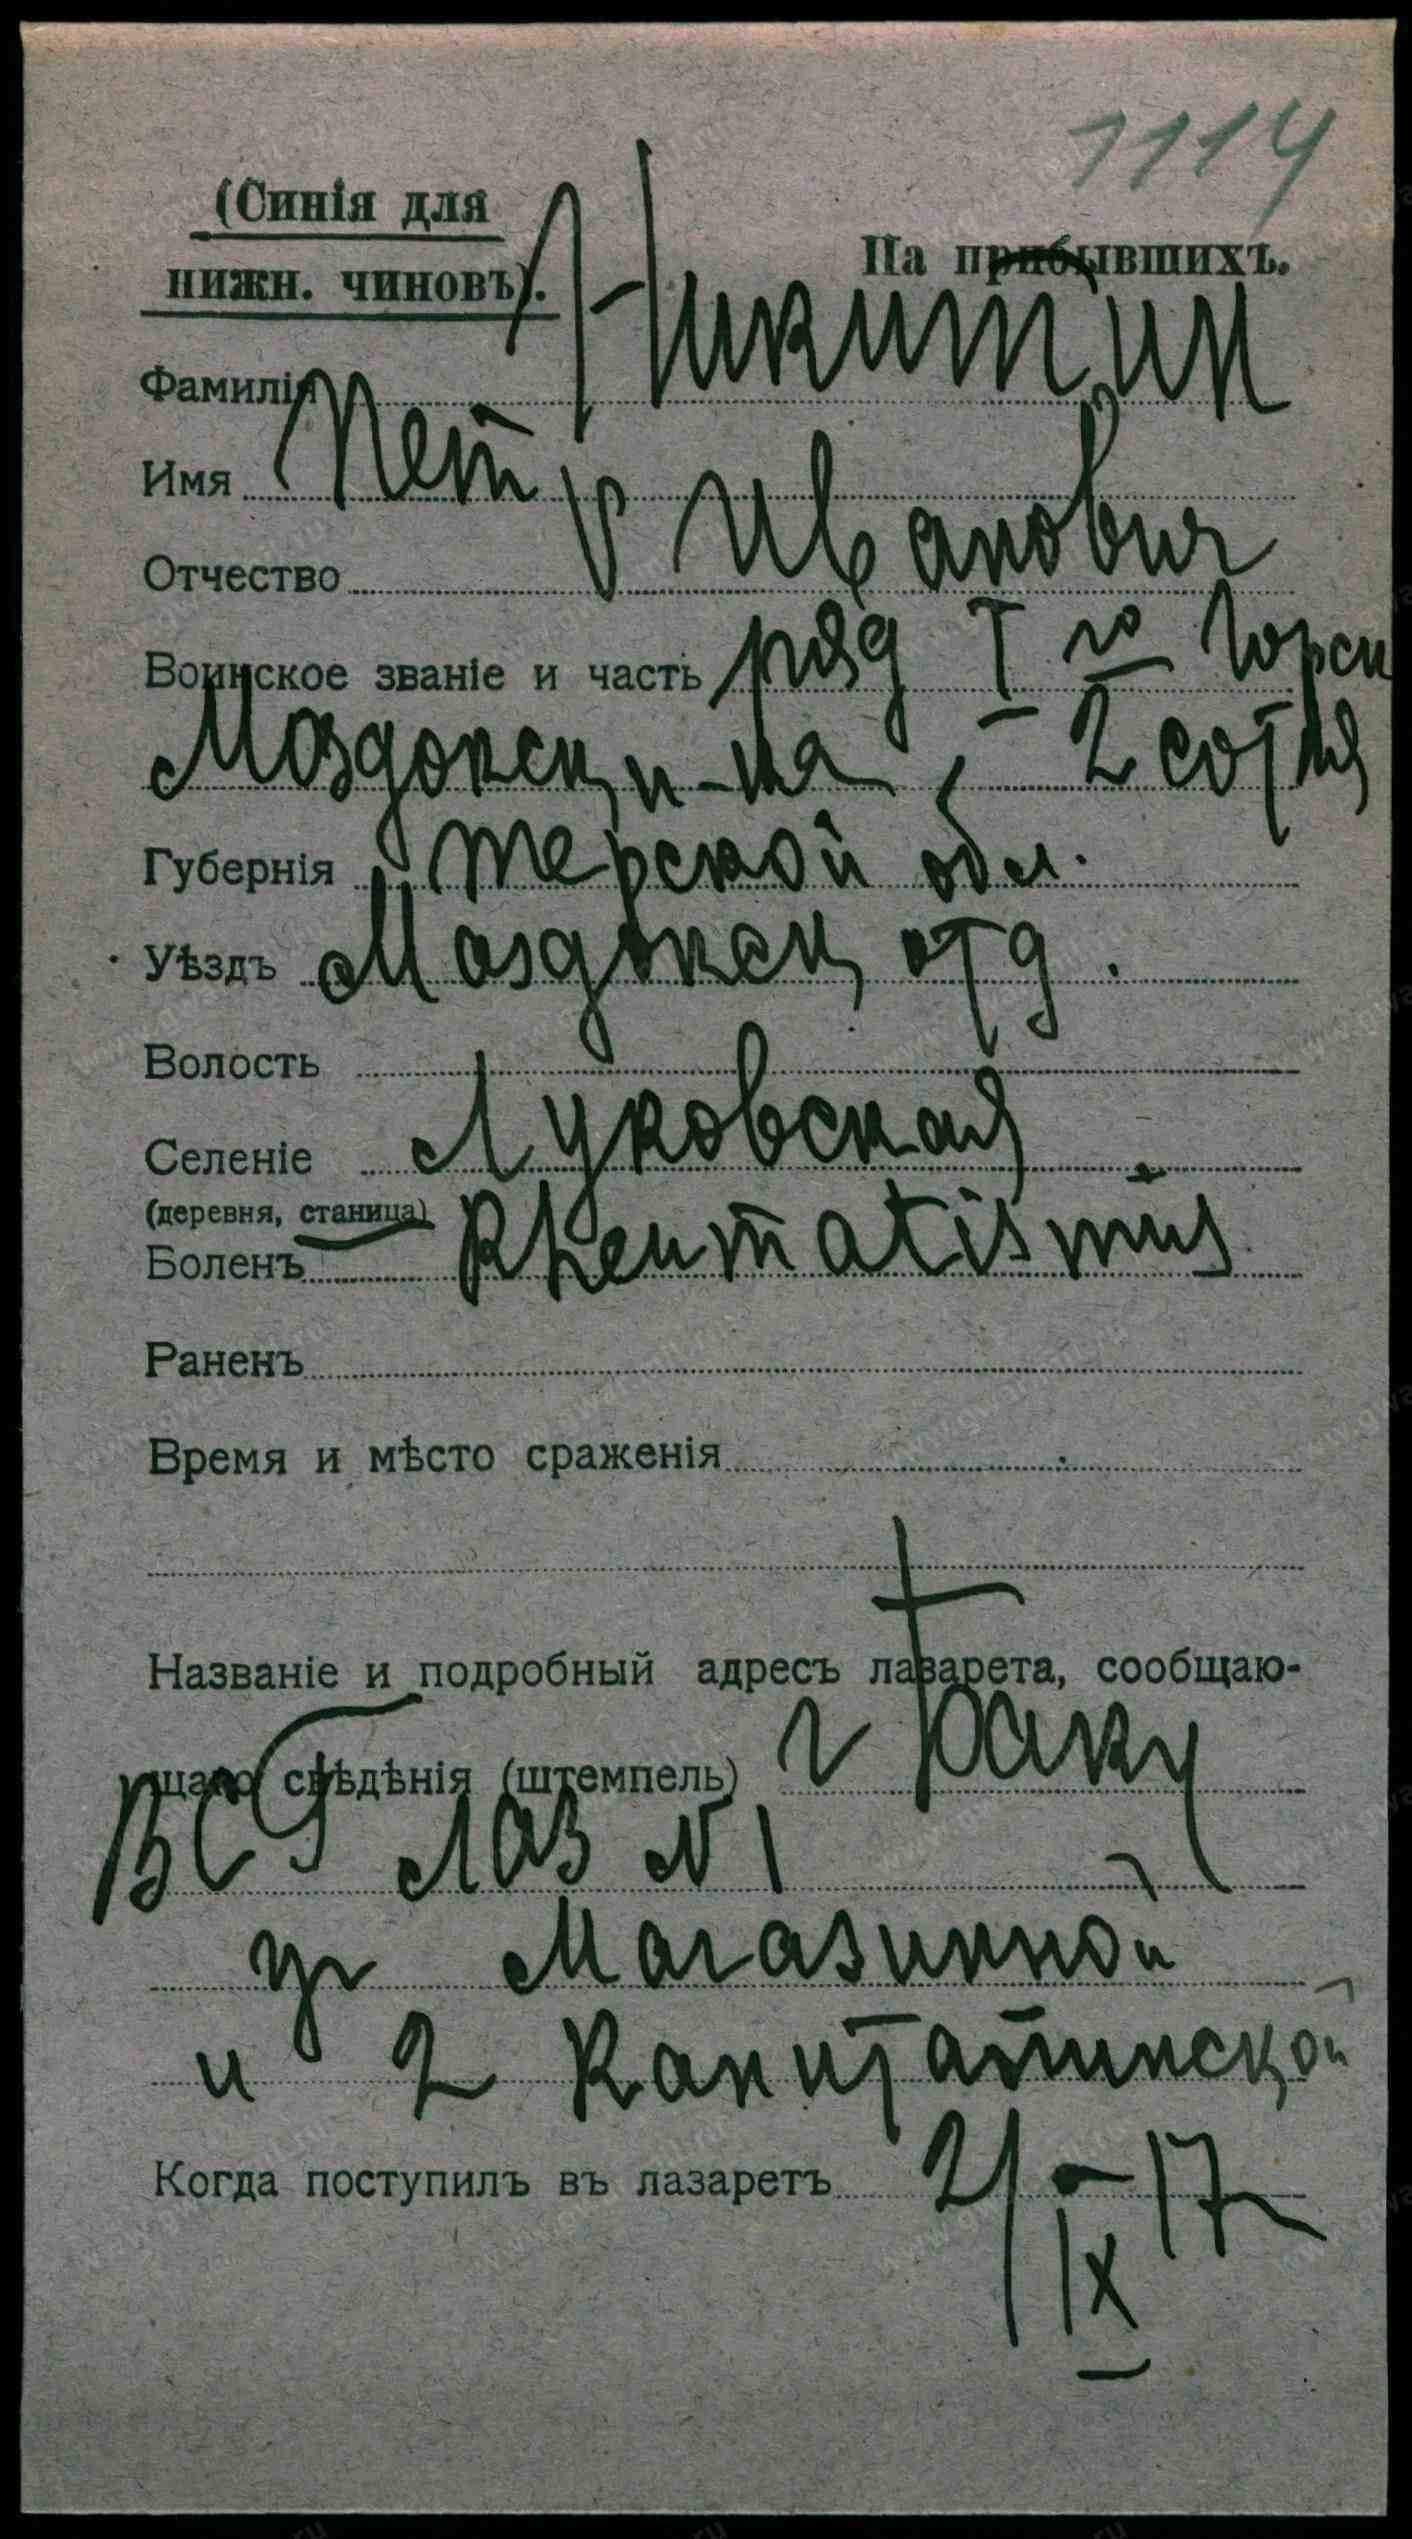 1114
(Синія для
нижн. чиновъ).
На прибывшихъ.
Фамилія Никитин
Имя Петр
Отчество Иванович
Воинское званіе и часть ряд I го Горск
Моздокск п-ка, - 2 сотня
Губернія Терской обл.
Уѣздъ Моздокск отд.
Волость
Селеніе Луковская
(деревня, станица)
Боленъ Rheumatismus
Раненъ
Время и мѣсто сраженія
Названіе и подробный адресъ лазарета, сообщаю-
щаго свѣдѣнія (штемпель) г Баку
ВСГ лаз № 1
уг Магазинной
и 2 Канитапинской
Когда поступилъ въ лазаретъ 21/IX-17